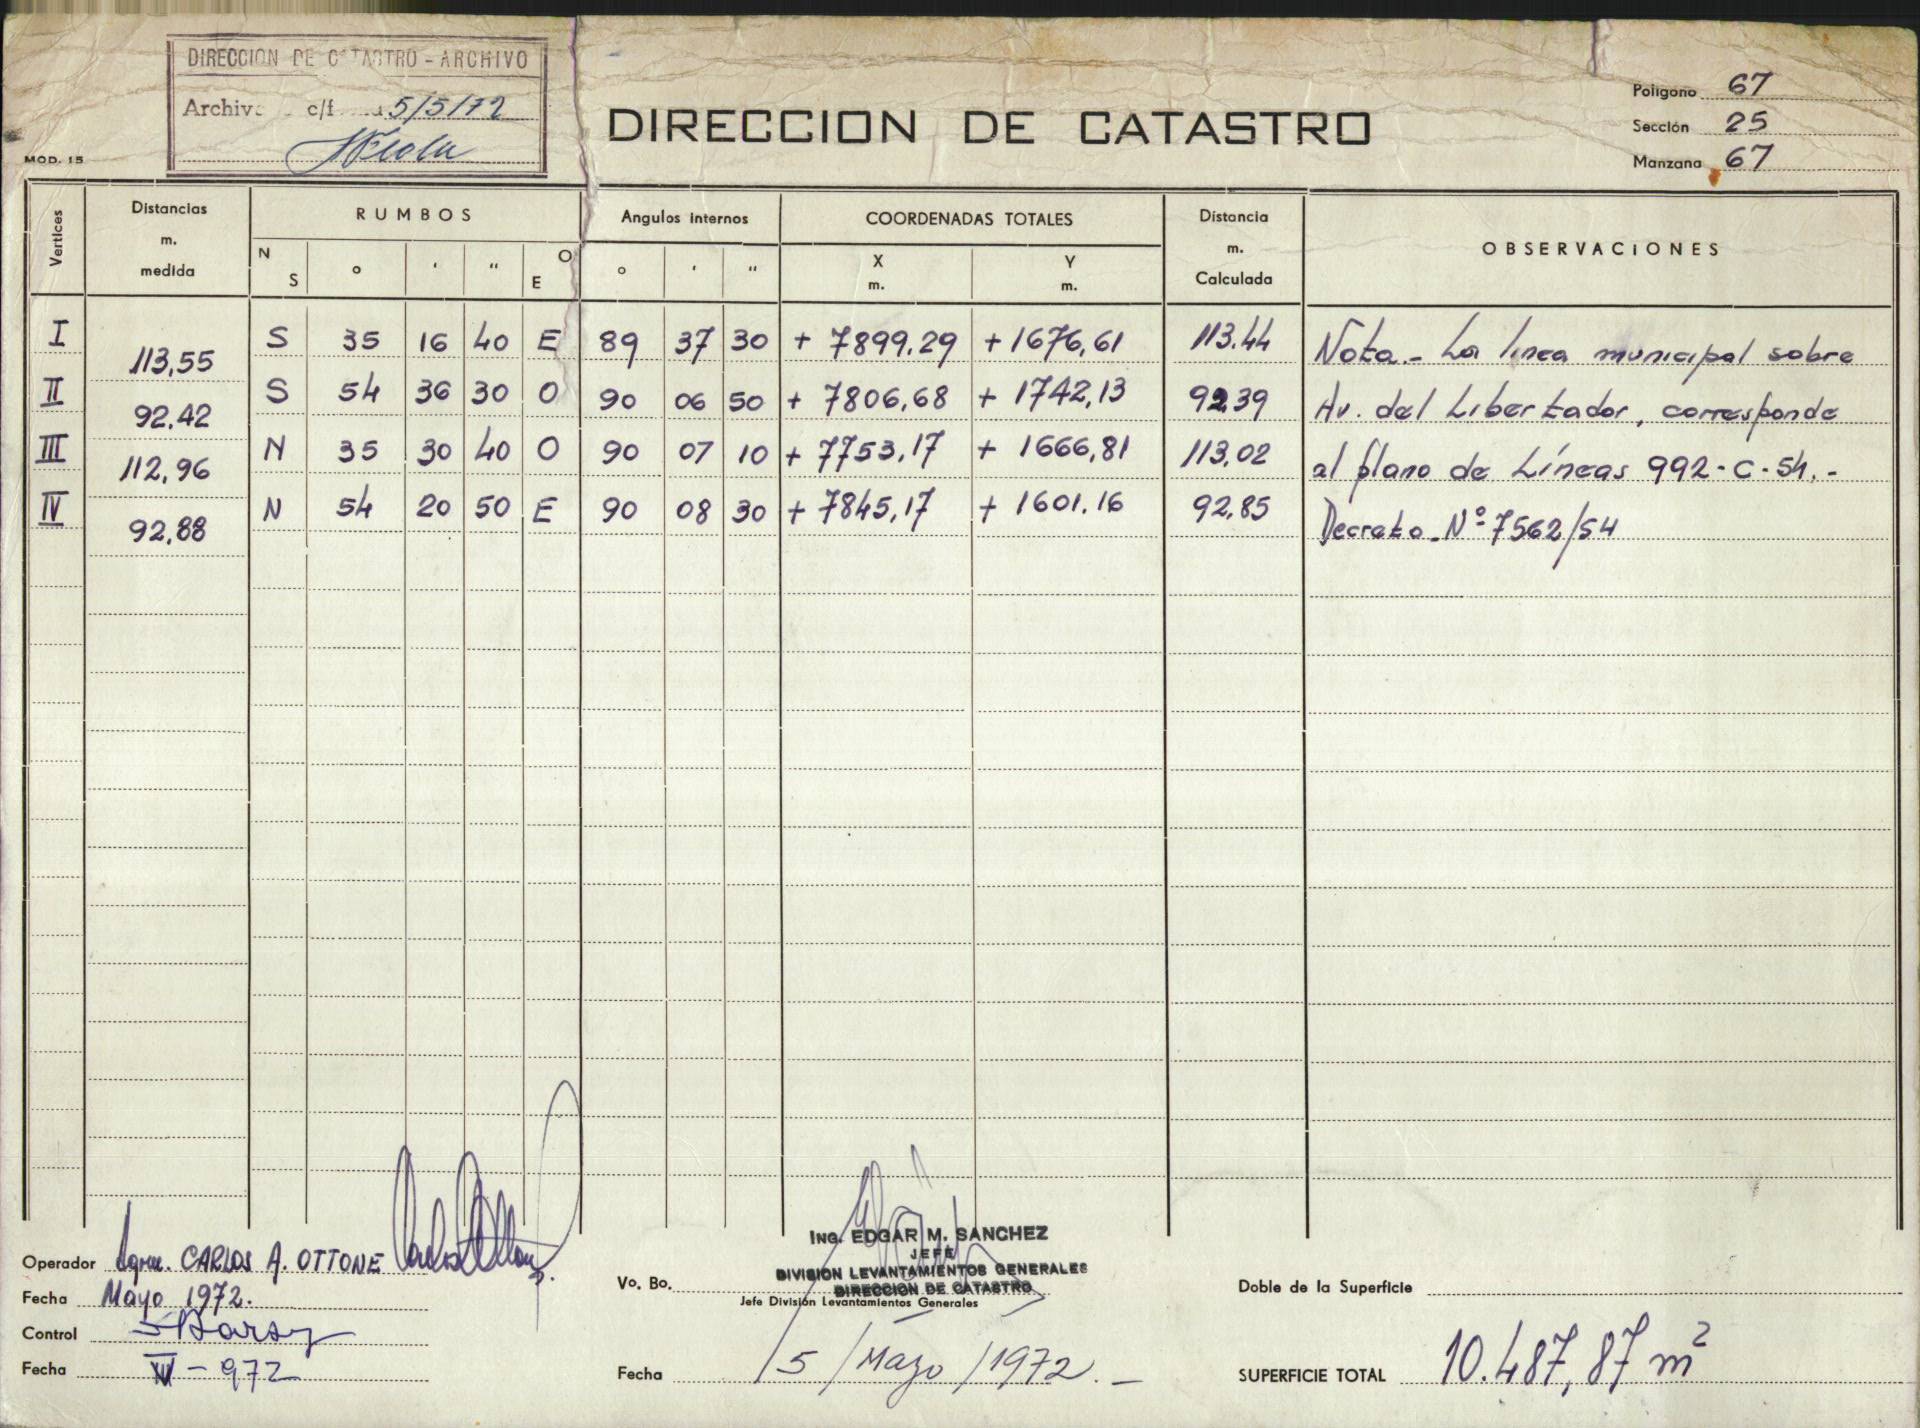 DIRECCION DE CATASTRO - ARCHIVO
Archivo c/f 5/5/72
DIRECCION DE CATASTRO
Polígono 67
Sección 25
Manzana 67
MOD. 15
Vertices
Distancias m. medida
RUMBOS
N S ° ' " O E
Angulos internos
° ' "
COORDENADAS TOTALES
X m. Y m.
Distancia m. Calculada
OBSERVACIONES
I 113,55 S 35 16 40 E 89 37 30 + 7899.29 + 1676,61 113.44 Nota.- La línea municipal sobre
II 92.42 S 54 36 30 O 90 06 50 + 7806,68 + 1742,13 92.39 Av. del Libertador, corresponde
III 112,96 N 35 30 40 O 90 07 10 + 7753,17 + 1666,81 113,02 al plano de Líneas 992-C-54.-
IV 92,88 N 54 20 50 E 90 08 30 + 7845,17 + 1601.16 92,85 Decreto Nº 7562/54
Operador Agrm. CARLOS A. OTTONE
Fecha Mayo 1972.
Control
Fecha - 972
ING. EDGAR M. SANCHEZ
JEFE
DIVISION LEVANTAMIENTOS GENERALES
DIRECCION DE CATASTRO
Vo. Bo.
Jefe División Levantamientos Generales
Fecha 15/Mayo/1972.-
Doble de la Superficie
SUPERFICIE TOTAL 10.487,87 m²